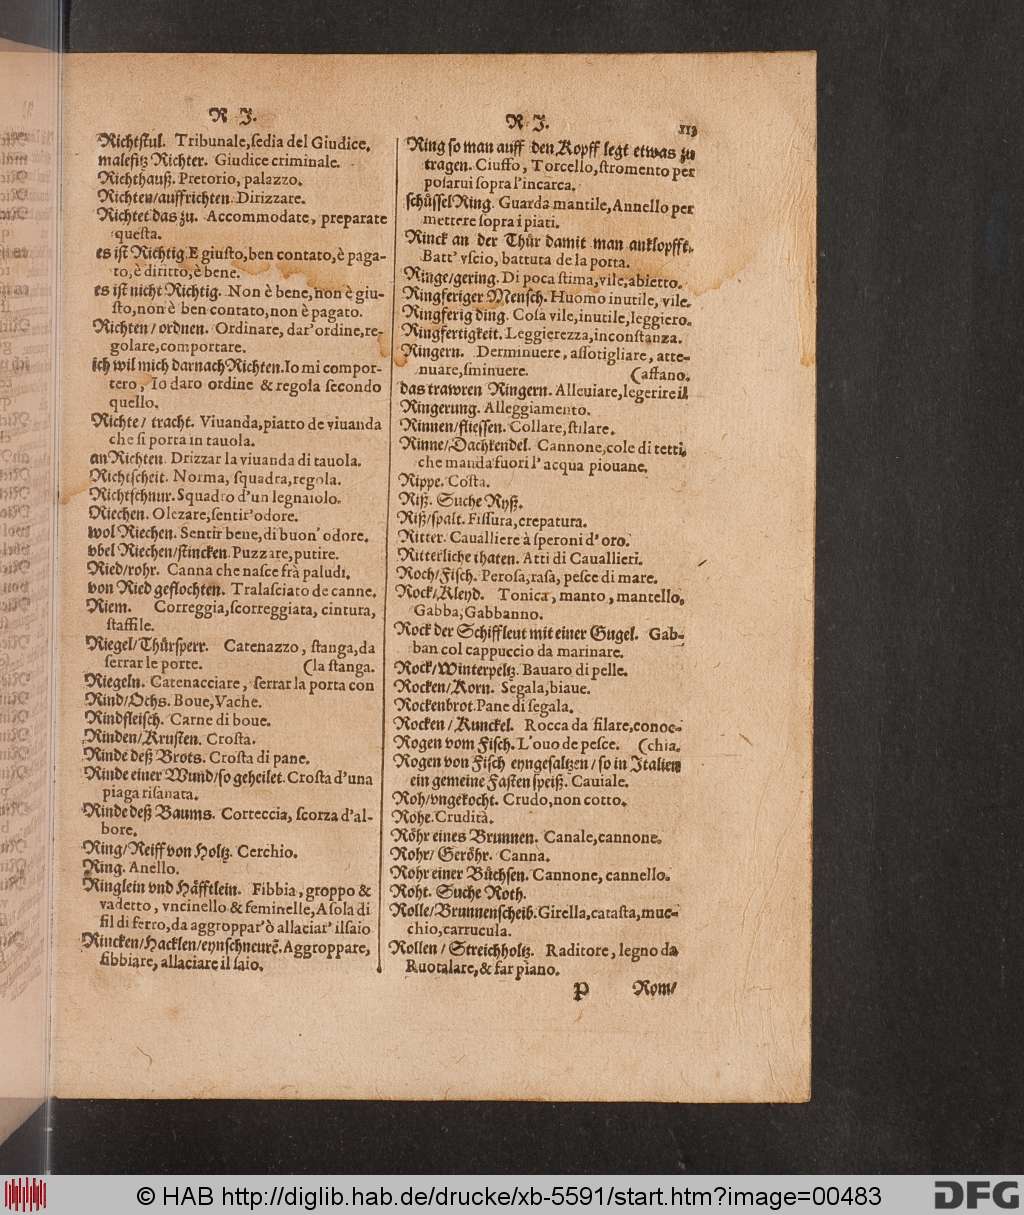 R J.
Richtſtul. Tribunale,ſedia del Giudice.
malefitz Richter. Giudice criminale.
Richthauß. Pretorio, palazzo.
Richten/auffrichten. Dirizzare.
Richtet das zu. Accommodate, preparate
queſta.
es iſt Richtig. E giuſto,ben contato,è paga-
to,è diritto,è bene.
es iſt nicht Richtig. Non è bene,non è giu-
ſto,non è ben contato,non è pagato.
Richten/ ordnen. Ordinare, dar' ordine,re-
golare,comportare.
ich wil mich darnach Richten. Io mi compor-
tero, Io daro ordine & regola ſecondo
quello.
Richte/ tracht. Viuanda,piatto de viuanda
che ſi porta in tauola.
anRichten. Drizzar la viuanda di tauola.
Richtſcheit. Norma, ſquadra,regola.
Richtſchnur. Squadro d'un legnaiolo.
Riechen. Olezare,ſentir'odore.
wol Riechen. Sentir bene,di buon' odore.
vbel Riechen/ſtincken. Puzzare,putire.
Ried/rohr. Canna che naſce frà paludi.
von Ried geflochten. Tralaſciato de canne.
Riem. Correggia,ſcorreggiata, cintura,
ſtaffile.
Riegel/Thürſperr. Catenazzo, ſtanga,da
ſerrar le porte. (la ſtanga.
Riegeln. Catenacciare, ſerrar la porta con
Rind/Ochs. Boue,Vache.
Rindfleiſch. Carne di boue.
Rinden/Kruſten. Croſta.
Rinde deß Brots. Croſta di pane.
Rinde einer Wund/ſo geheilet. Croſta d'una
piaga riſanata.
Rinde deß Baums. Corteccia, ſcorza d'al-
bore.
Ring/Reiff von Holtz. Cerchio.
Ring. Anello.
Ringlein vnd Häfftlein. Fibbia, groppo &
vadetto, vncinello & feminelle,Aſola di
fil di ferro,da aggroppar'ò allaciar' il ſaio
Rincken/Hacklen/eynſchneurẽ. Aggroppare,
fibbiare, allaciare il ſaio.
R J. 113
Ring ſo man auff den Kopff legt etwas zu
tragen. Ciuffo, Torcello,ſtromento per
poſarui ſopra l'incarca.
ſchüſſel Ring. Guarda mantile,Annello per
mettere ſopra i piati.
Rinck an der Thür damit man anklopfft.
Batt' vſcio, battuta de la porta.
Ringe/gering. Di poca ſtima,vile,abietto.
Ringferiger Menſch. Huomo inutile, vile.
Ringferig ding. Coſa vile,inutile,leggiero.
Ringfertigkeit. Leggierezza,inconſtanza.
Ringern. Derminuere, aſſotigliare, atte-
nuare,ſminuere. (affano.
das trawren Ringern. Alleuiare,legerire il
Ringerung. Alleggiamento.
Rinnen/flieſſen. Collare,ſtilare.
Rinne/Dachkendel. Cannone,cole di tetti,
che manda fuori l' acqua piouane.
Rippe. Coſta.
Riß. Suche Ryß.
Riß/ſpalt. Fiſſura,crepatura.
Ritter. Cauалliere à ſperoni d' oro.
Ritterliche thaten. Atti di Cauallieri.
Roch/Fiſch. Peroſa,raſa, peſce di mare.
Rock/Kleyd. Tonica, manto, mantello,
Gabba,Gabbanno.
Rock der Schiffleut mit einer Gugel. Gab-
ban col cappuccio da marinare.
Rock/Winterpeltz. Bauaro di pelle.
Rocken/Korn. Segala,biaue.
Rockenbrot. Pane di ſegala.
Rocken / Kunckel. Rocca da filare,conoc-
Rogen vom Fiſch. L'ouo de peſce. (chia.
Rogen von Fiſch eyngeſaltzen/ ſo in Italien
ein gemeine Faſten ſpeiß. Cauiale.
Roh/vngekocht. Crudo,non cotto.
Rohe. Crudità.
Röhr eines Brunnen. Canale,cannone.
Rohr/ Geröhr. Canna.
Rohr einer Büchſen. Cannone, cannello.
Roht. Suche Roth.
Rolle/Brunnenſcheib. Girella,cataſta,muc-
chio,carrucula.
Rollen / Streichholtz. Raditore, legno da
Ruotalare,& far piano.
P Rom/
© HAB http://diglib.hab.de/drucke/xb-5591/start.htm?image=00483
DFG